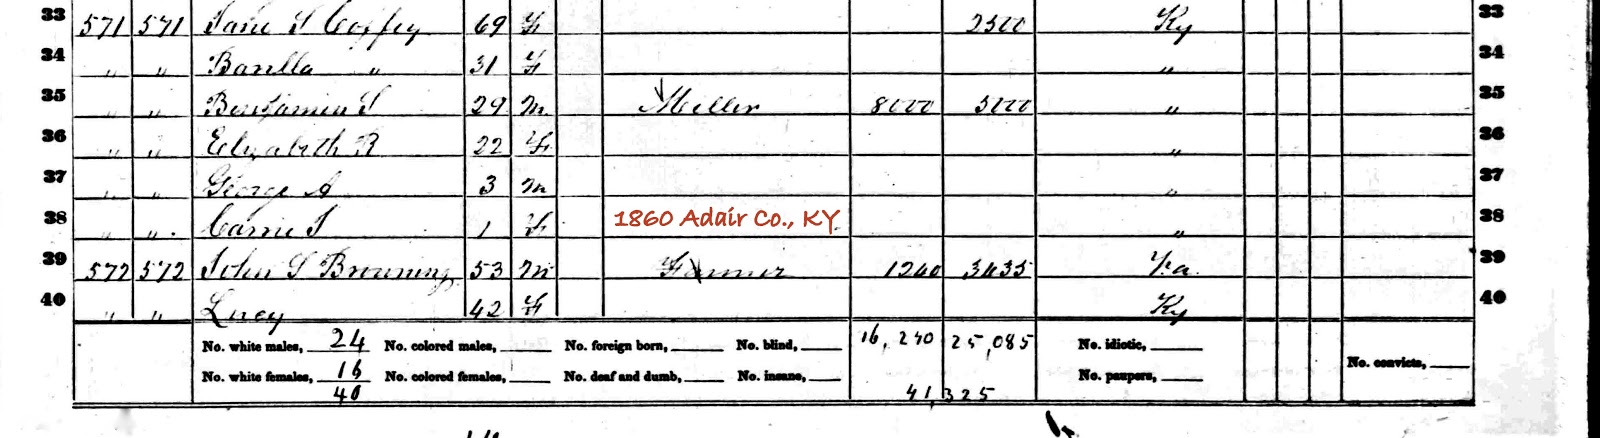 33 571 571 Jane S Coffey 69 F 2500 Ky 33
34 " " Barilla " 31 F " 34
35 " " Benjamin S 29 M Miller 8000 5000 " 35
36 " " Elizabeth R 22 F " 36
37 " " George A 3 M " 37
38 " " Carrie S 1 F 1860 Adair Co., KY " 38
39 572 572 John S Browning 53 M Farmer 1240 3635 Va. 39
40 " " Lucy 42 F Ky 40
No. white males, 24 No. colored males, No. foreign born, No. blind, 16,240 25,085 No. idiotic,
No. convicts,
No. white females, 16 No. colored females, No. deaf and dumb, No. insane, No. paupers,
40 41,325